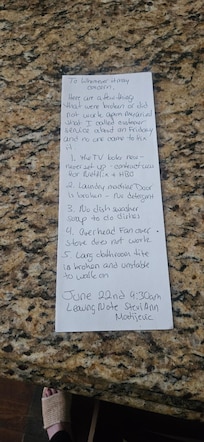 To Whomever it may
concern,
Here are a few things
that were broken or did
not work upon arrival
that I called customer
service about on Friday
and no one came to fix
it
1. The TV box new -
never set up - contract
for Netflix + HBO
2. Laundry machine Door
is broken - No detergent
3. No dish washer
soap to do dishes
4. Overhead Fan over
stove does not work.
5. Large bathroom tile
is broken and unstable
to walk on
June 22nd 9:30am
Leaving Note Stevi Ann